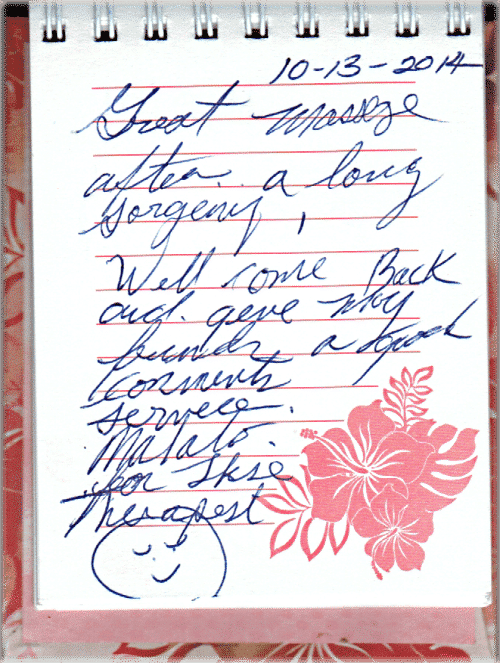 10-13-2014
Great massege
after a long
sorgery,
Well come Back
and. geve my
friends a good
comments
servece.
Mahalo.
for
Therapest